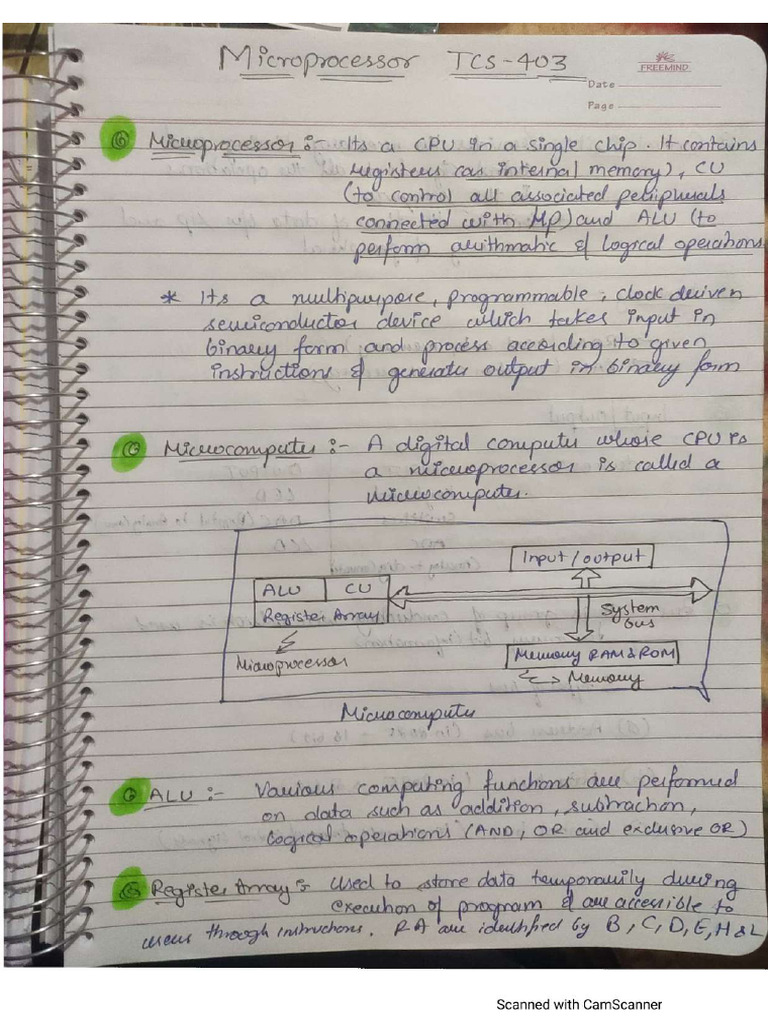 Microprocessor TCS-403
FREEMIND
Date
Page
Microprocessor :- Its a CPU in a single chip. It contains
registers (as internal memory), CU
(to control all associated peripherals
connected with MP) and ALU (to
perform arithmatic & logical operations
* Its a multipurpose, programmable, clock deriven
semiconductor device which takes input in
binary form and process according to given
instructions & generates output in binary form
Microcomputer :- A digital computer whose CPU is
a microprocessor is called a
microcomputer.
Input/output
ALU CU
Register Array
System
bus
Microprocessor
Memory RAM & ROM
Memory
Microcomputer
ALU :- Various computing functions are performed
on data such as addition, subtraction,
logical operations (AND, OR and exclusive OR)
Register Array :- Used to store data temporarily during
execution of program & are accessible to
users through instructions. RA are identified by B, C, D, E, H & L
Scanned with CamScanner